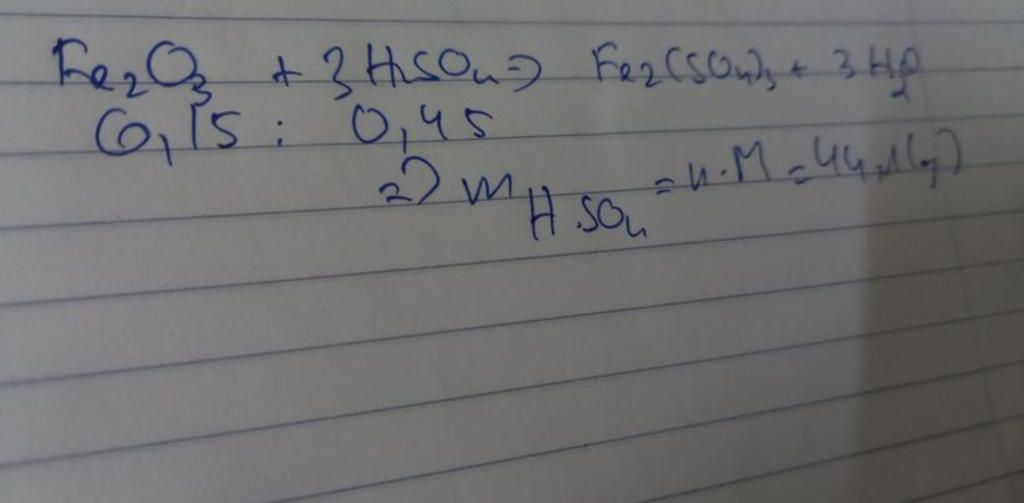 Fe2O3 + 3H2SO4 => Fe2(SO4)3 + 3H2O
0,15 : 0,45
=> mH2SO4 = n.M = 44,1(g)